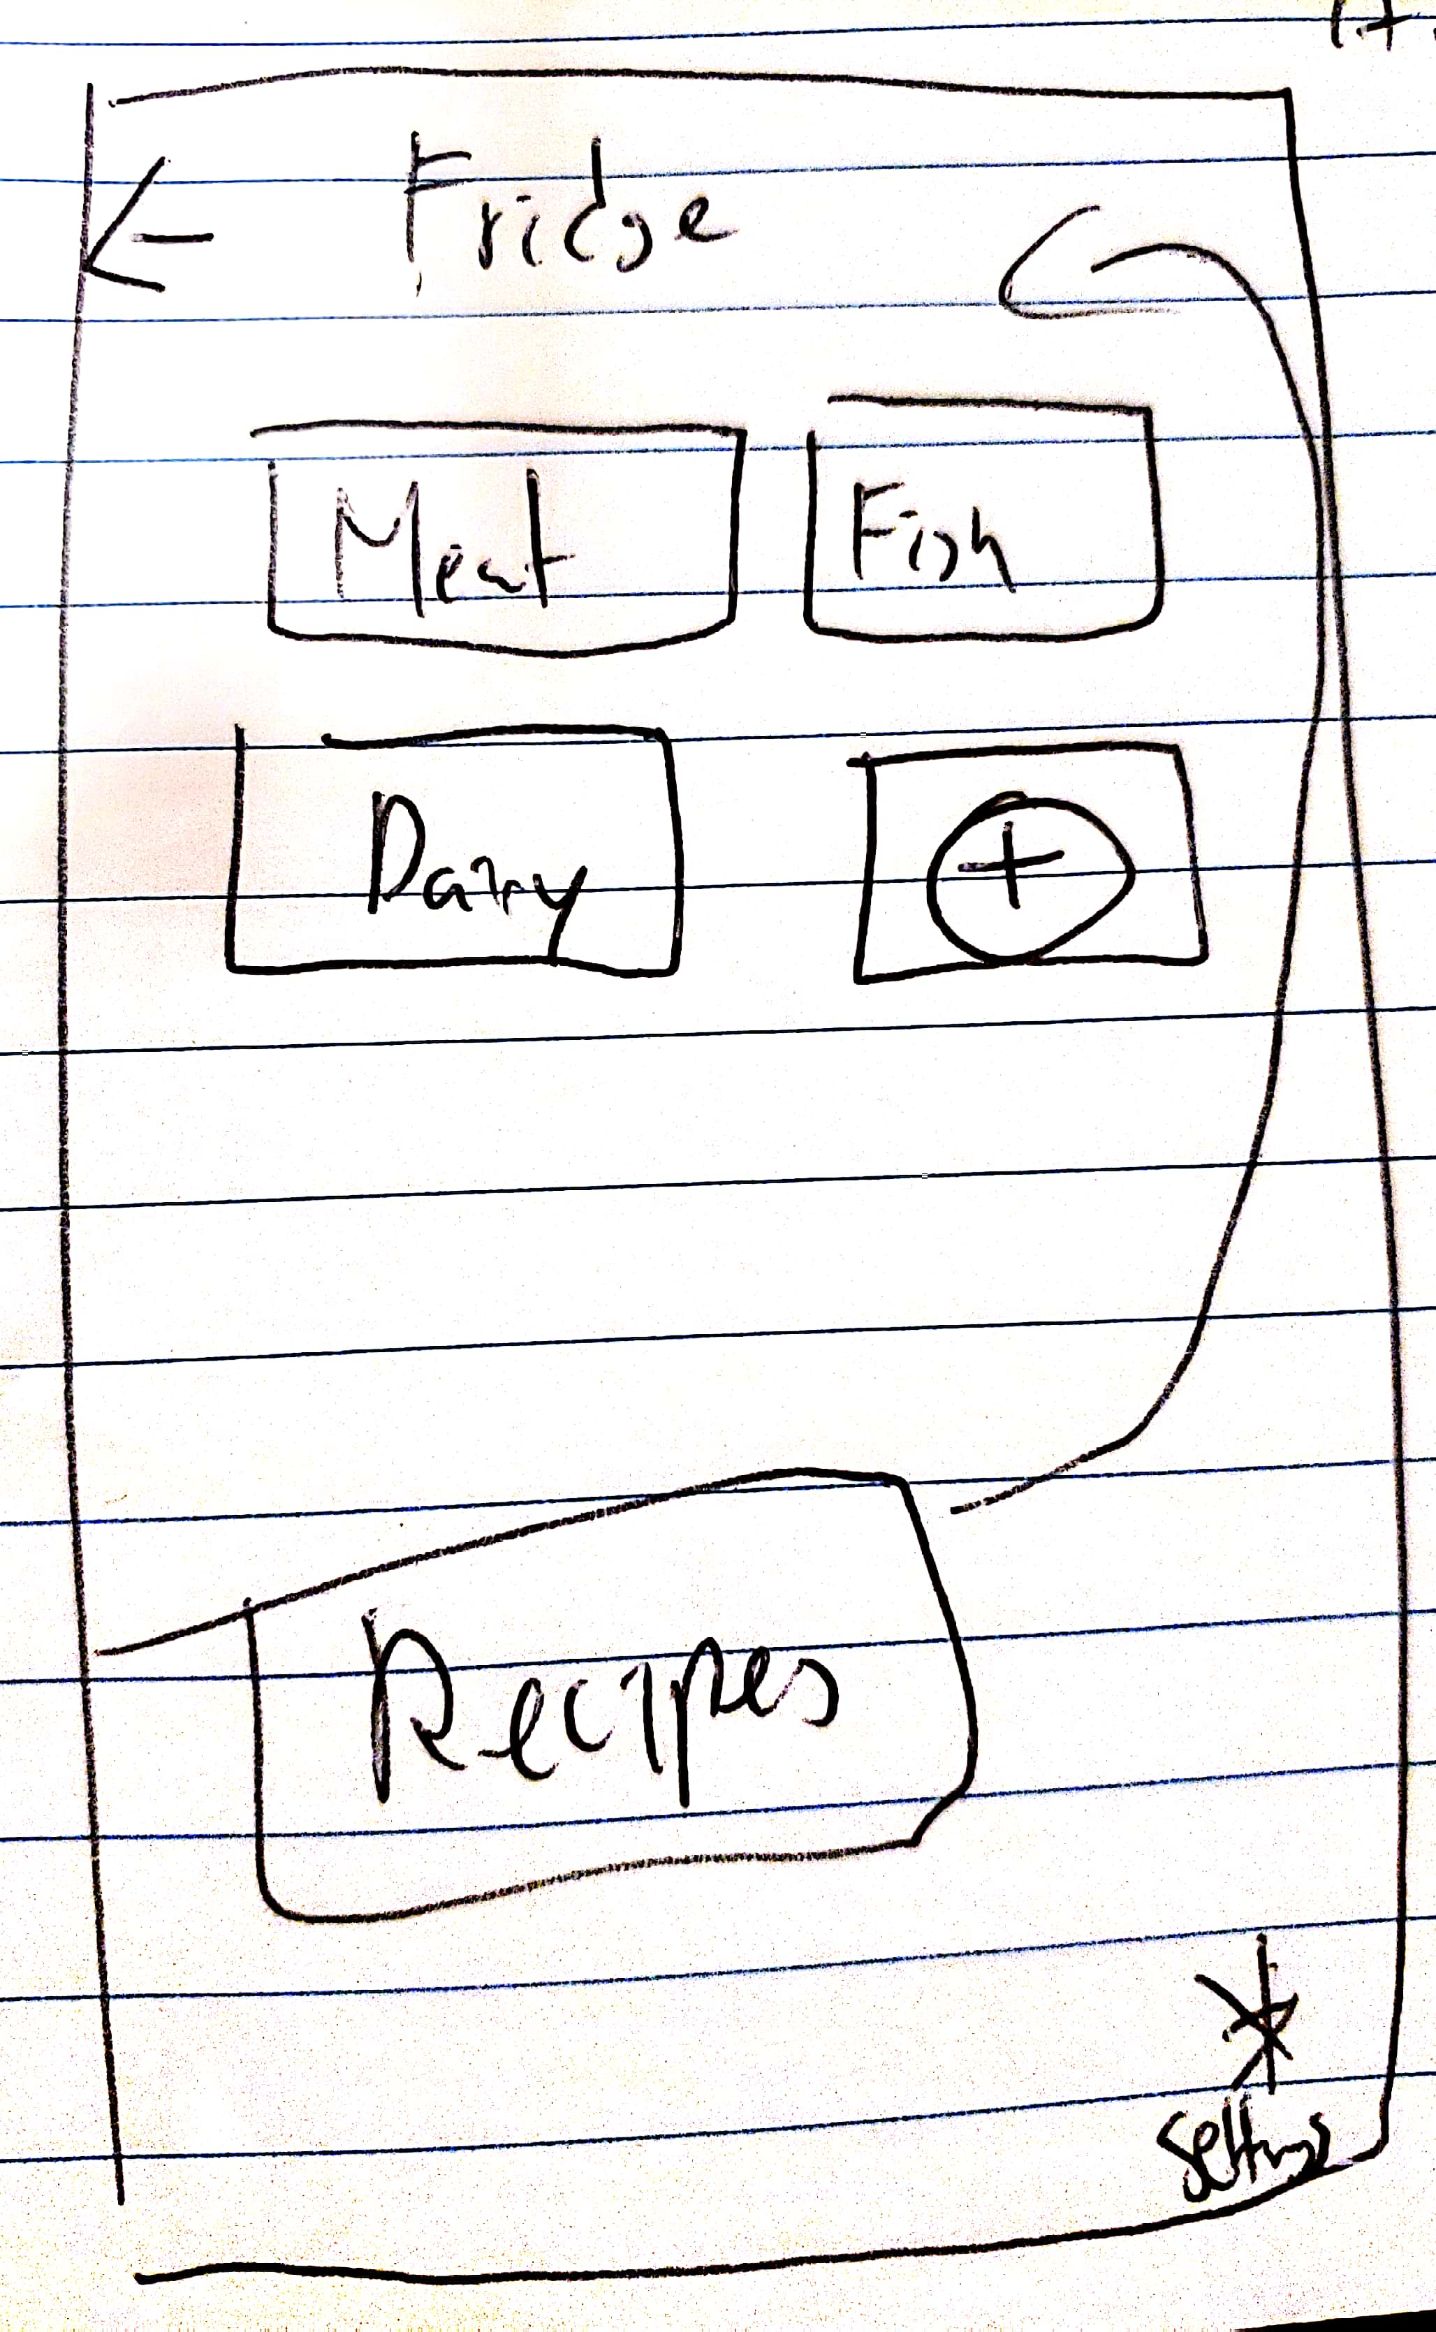 Fridge
Meat Fish
Dairy +
Recipes
settings